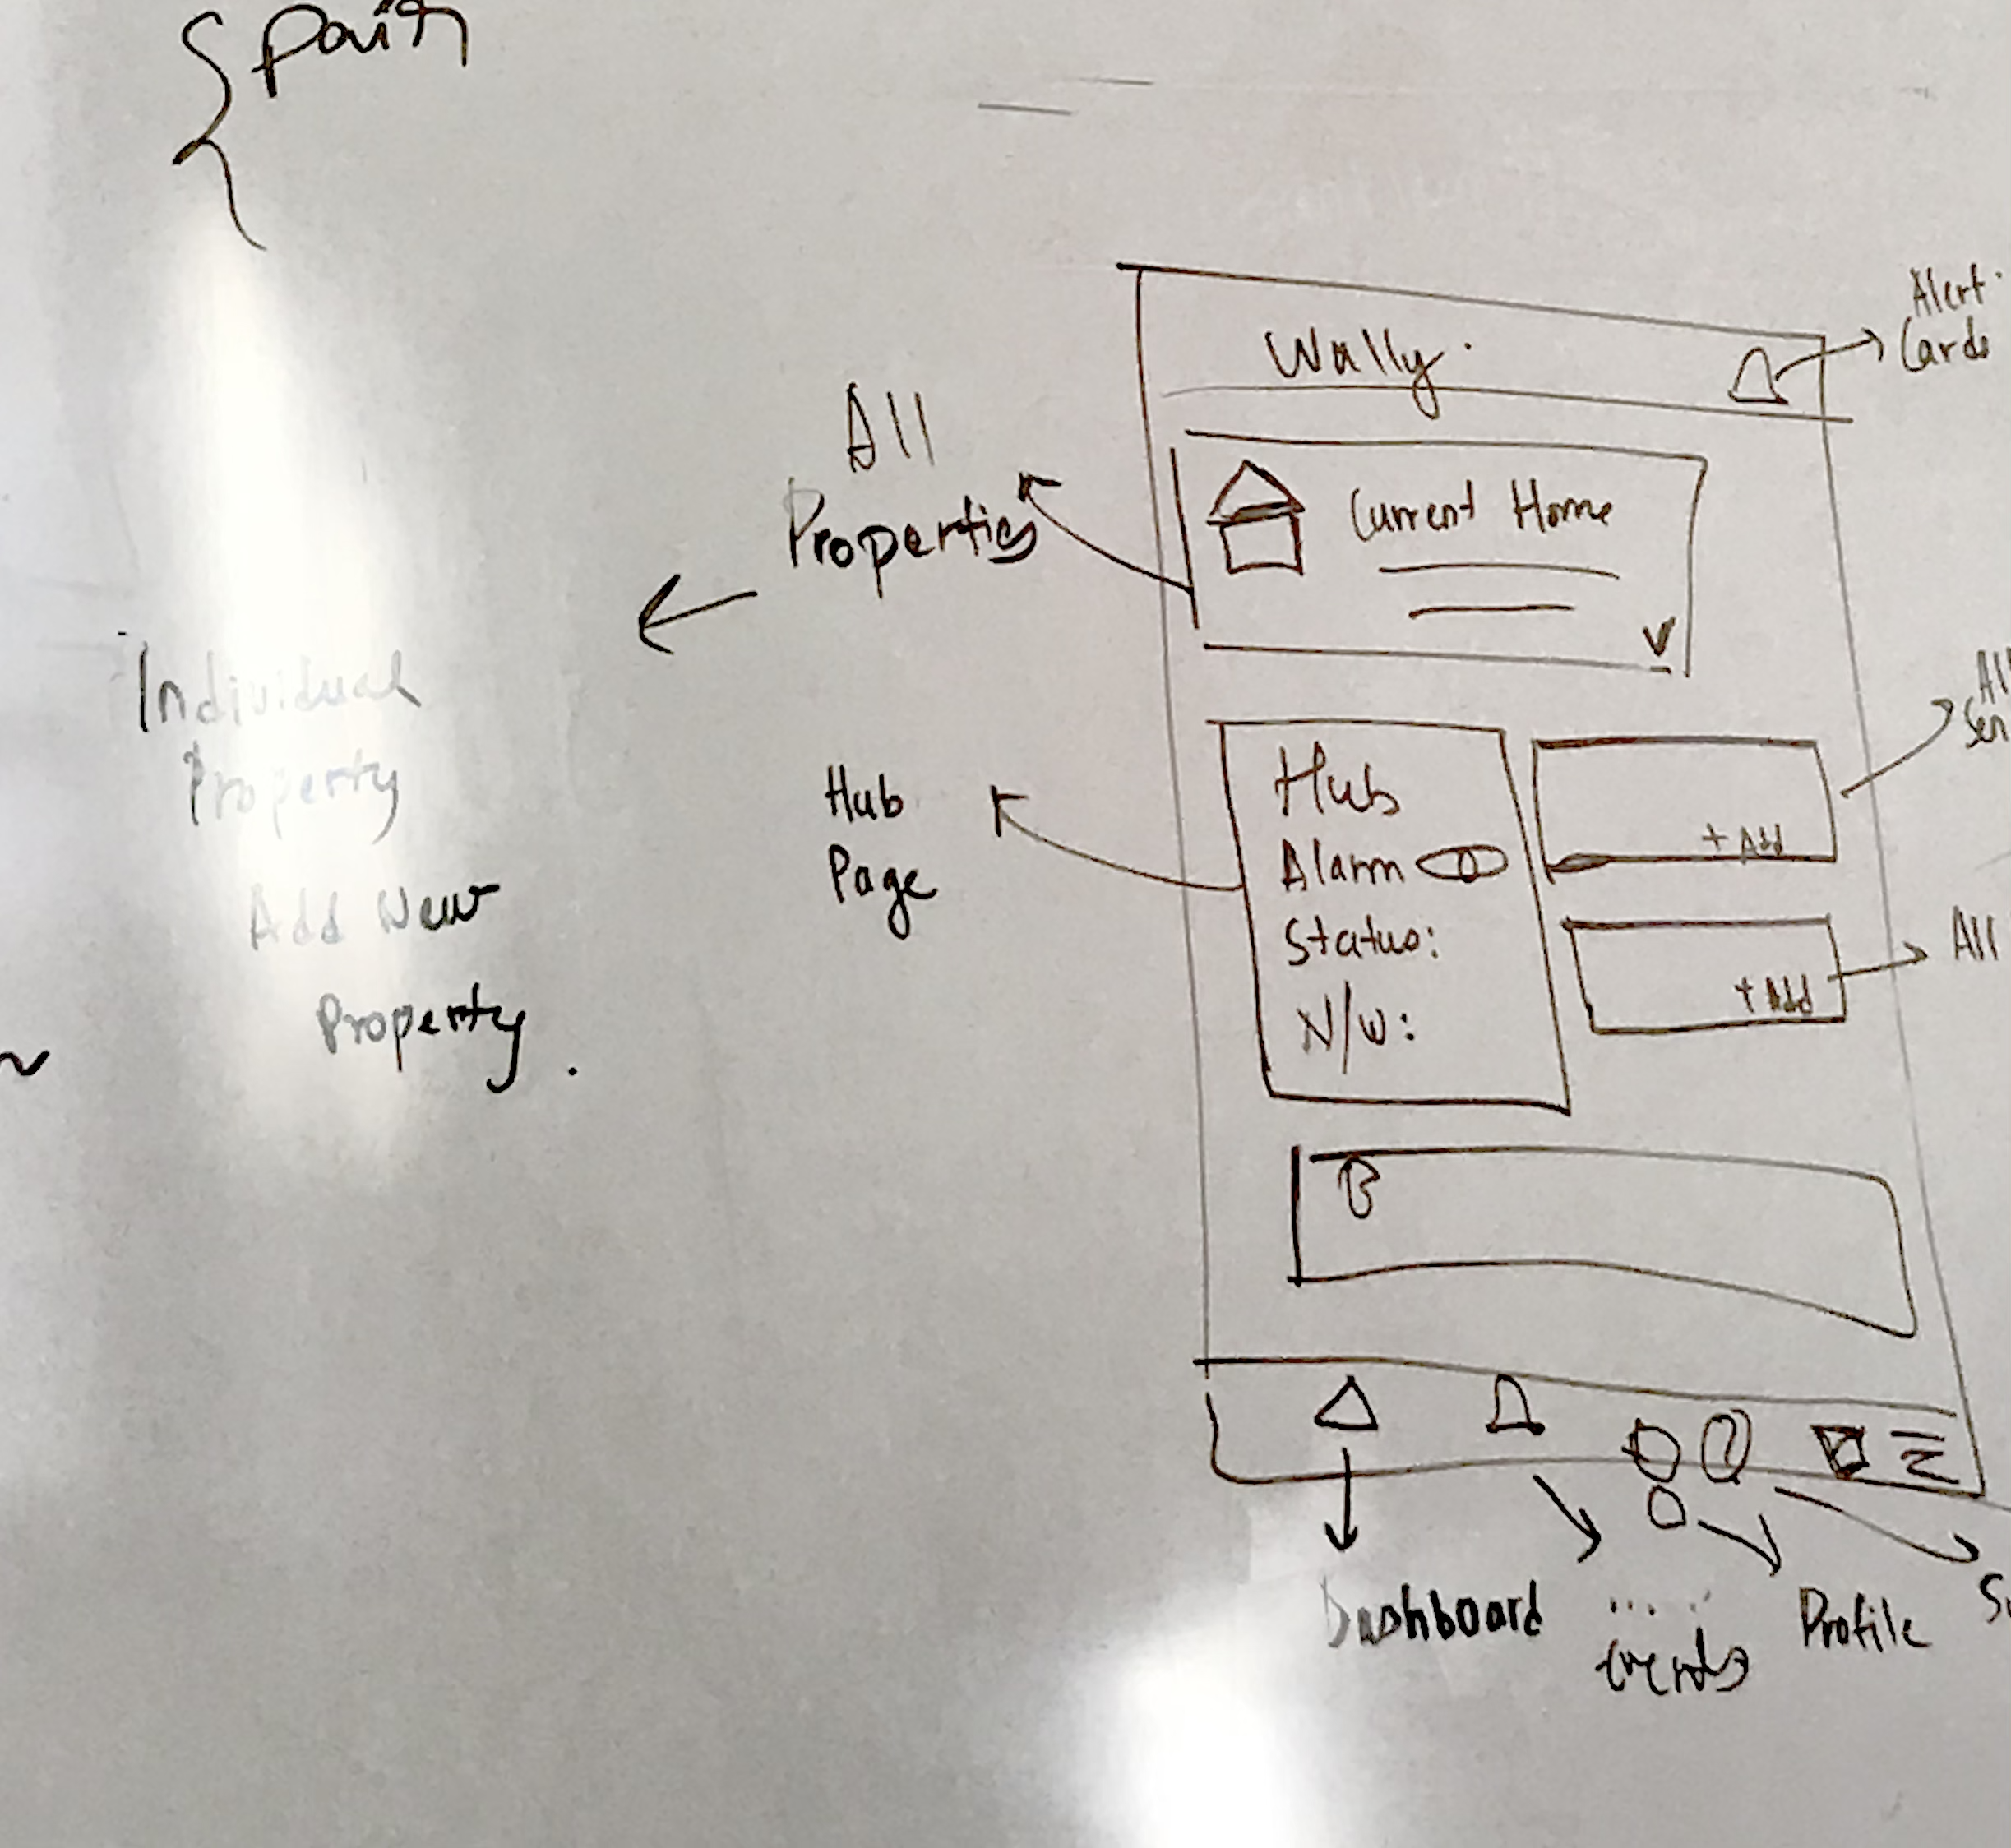 Wally.
Alert
Cards
All
Properties
Current Home
Individual
Property
Add New
Property.
Hub
Page
Hub
Alarm
Status:
N/W:
+ Add
+ Add
All
Dashboard
trends
Profile